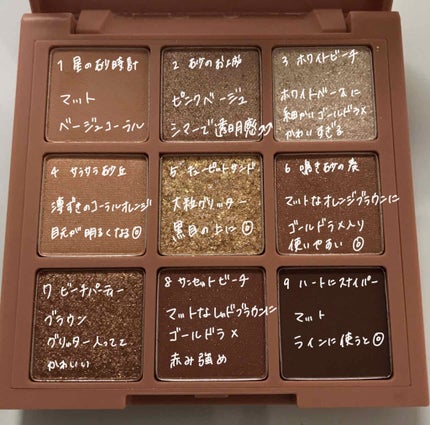 1 星の砂時計
マット
ベージュコーラル
2 砂のお城
ピンクベージュ
シマーで透明感
3 ホワイトビーチ
ホワイトベースに
細かいゴールドラメ
かわいすぎる
4 サラサラ砂丘
薄づきのコーラルオレンジ
目元が明るくなる◎
5
大粒グリッター
黒目の上に◎
6 鳴き砂の炭
マットなオレンジブラウンに
ゴールドラメ入り
使いやすい◎
7 ビーチパーティー
ブラウン
グリッター入ってて
かわいい
8 サンセットビーチ
マットなレッドブラウンに
ゴールドラメ
赤み強め
9 ハートにスナイパー
マット
ラインに使うと◎